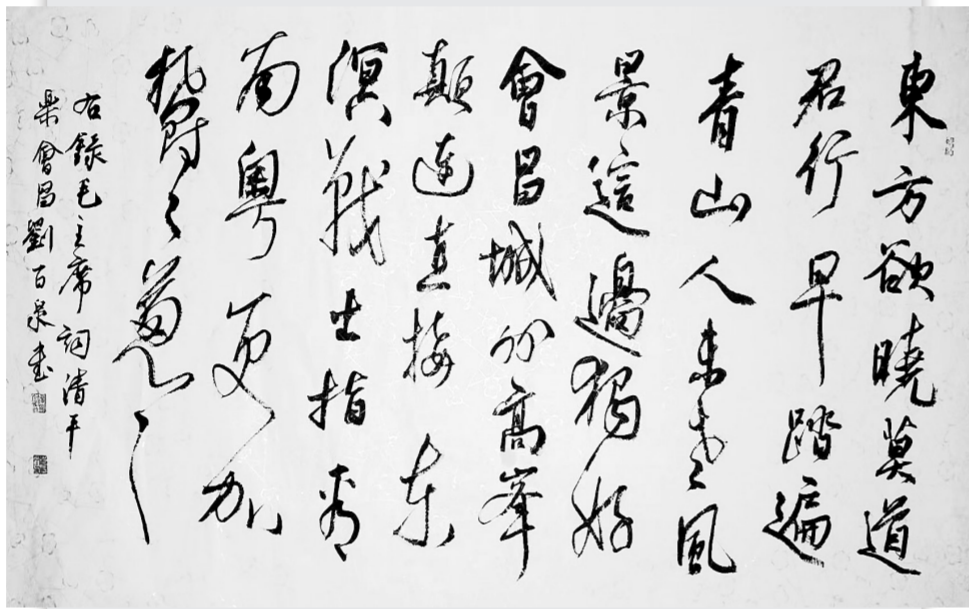 東方欲曉莫道
君行早踏遍
青山人未老風
景這邊獨好
會昌城外高峯
顛連直接東
溟戰士指看
南粵更加
鬱々葱々
右錄毛主席詞清平
樂會昌劉百泉書